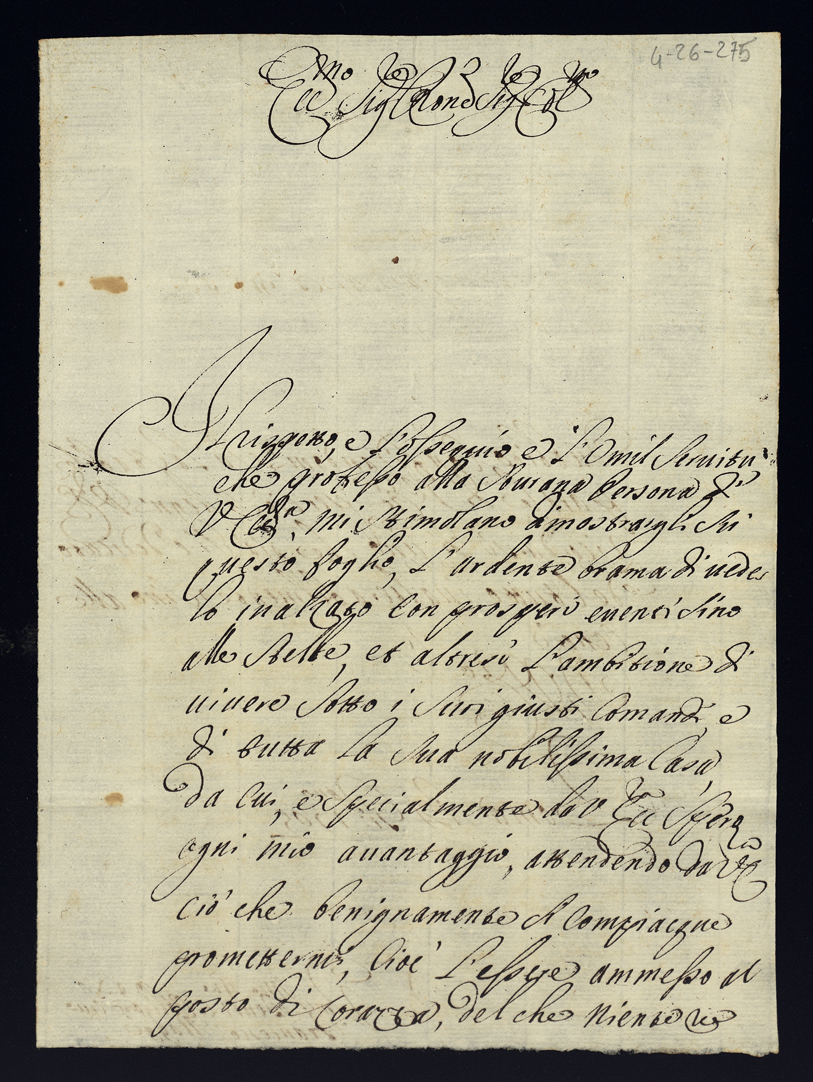 4-26-275
Ecc.mo Sig.re Pron.e Sig.re Col.mo
Il rispetto, e l'osseguio e l'Umil Seruitù
che professo alla Sourana Persona di
V Ecc.za, mi stimolano dimostrargli su
questo foglio, l'ardente brama di ueder
lo inalzato con prosperi euenti sino
alle stelle, et altresi l'ambitione di
uiuere sotto i suoi giusti Comandi e
di tutta la sua nobilissima Casa,
da cui, e specialmente da V. Ecc. Spero
ogni mio auantaggio, attendendo da V.E.
ciò che benignamente si Compiacque
promettermi, Cioè l'essere ammesso al
posto di Corazza, del che Niente